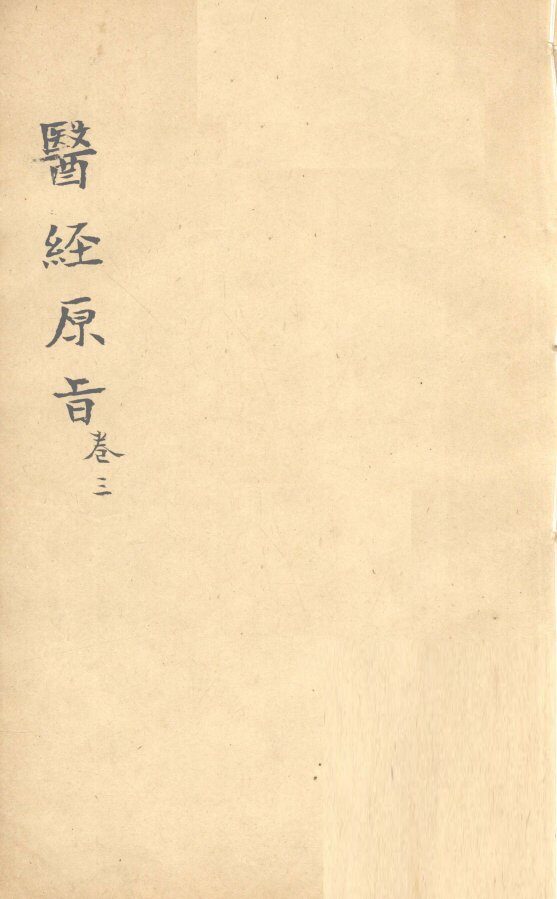 醫經原旨
卷三